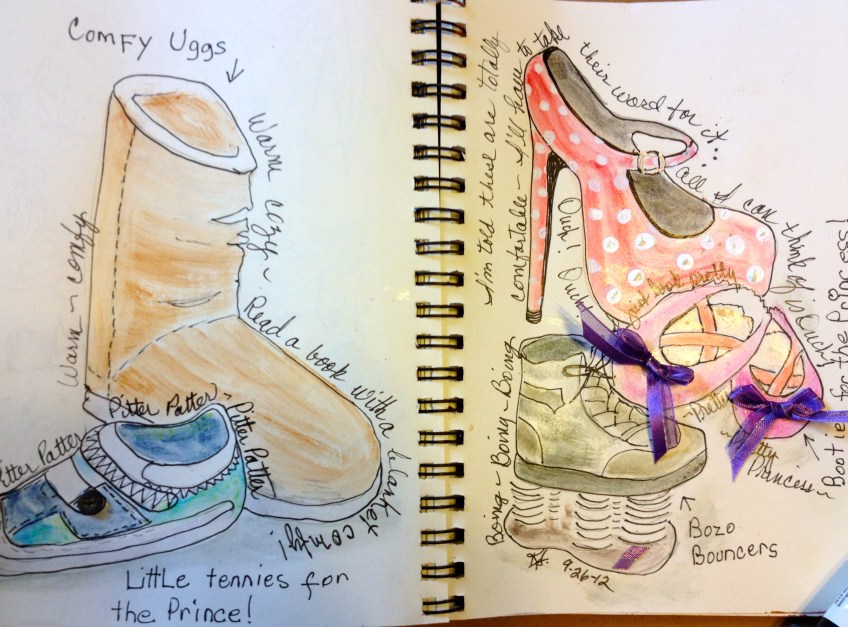 Comfy Uggs
Warm cozy ~
Warm ~ comfy
Read a book with a blanket comfy!
Pitter Patter Pitter Patter ~ Pitter Patter
Little tennies for
the Prince!
I'm told these are totally
comfortable ~ I'll have to take their word for it...
all I can think of is Ouch!
Ouch! Ouch!
just look pretty
Boing ~ Boing ~ Boing
~ Pretty
~ Pretty Princess ~
Booties for the Princess!
Bozo
Bouncers
9-26-12